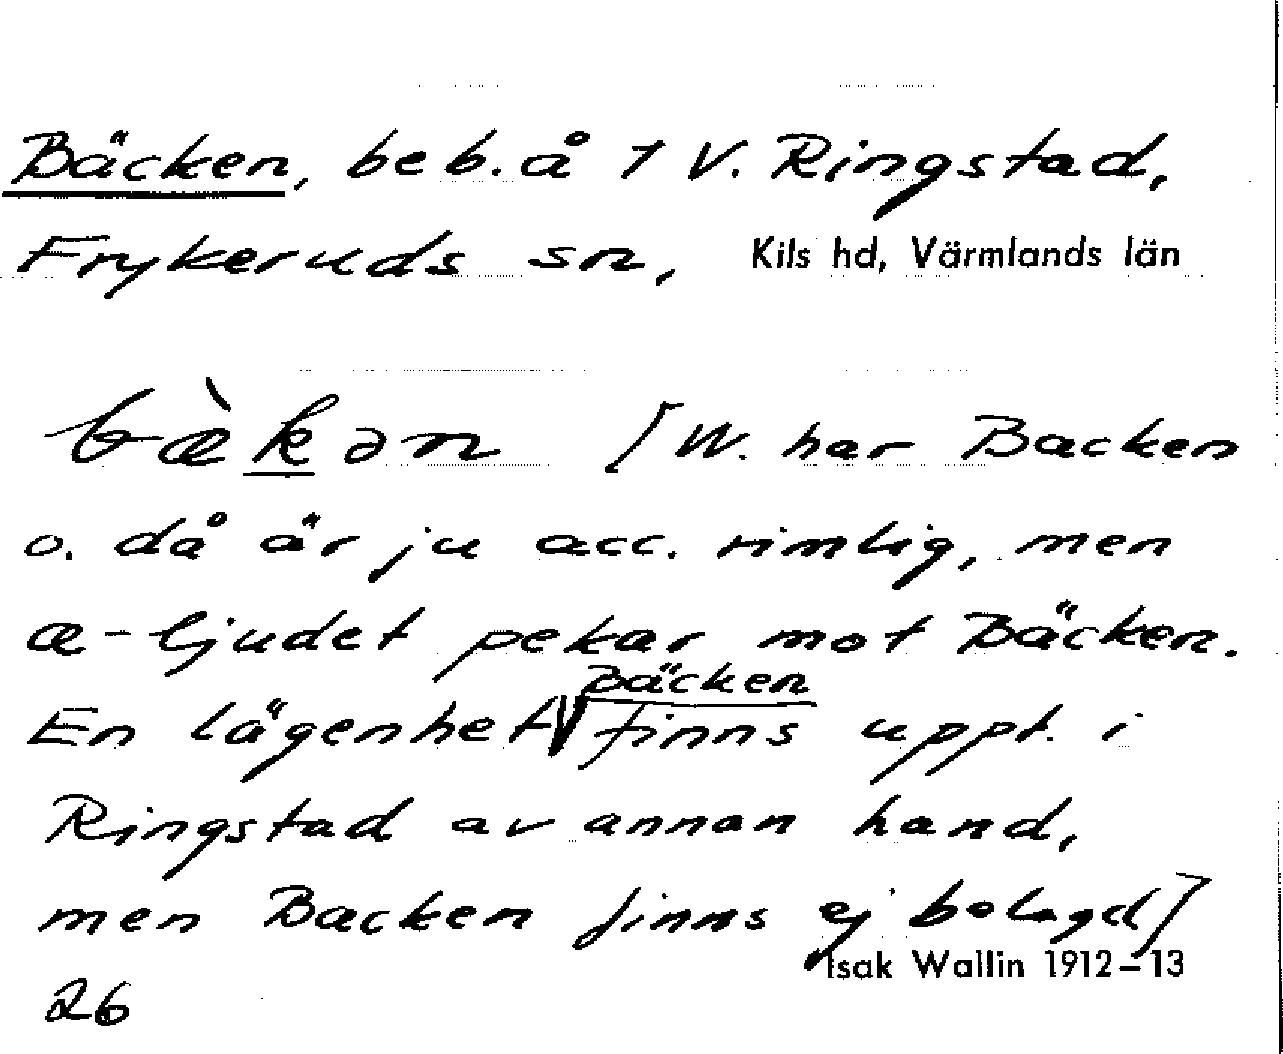 Bäcken, beb. å 1 V. Ringstad,
Frykeruds sn, Kils hd, Värmlands län
bæ̀kən [W. har Backen
o. då är ju acc. rimlig, men
æ-ljudet pekar mot Bäcken.
En lägenhet Bäcken finns uppt. i
Ringstad av annan hand,
men Backen finns ej belagd]
Isak Wallin 1912–13
26